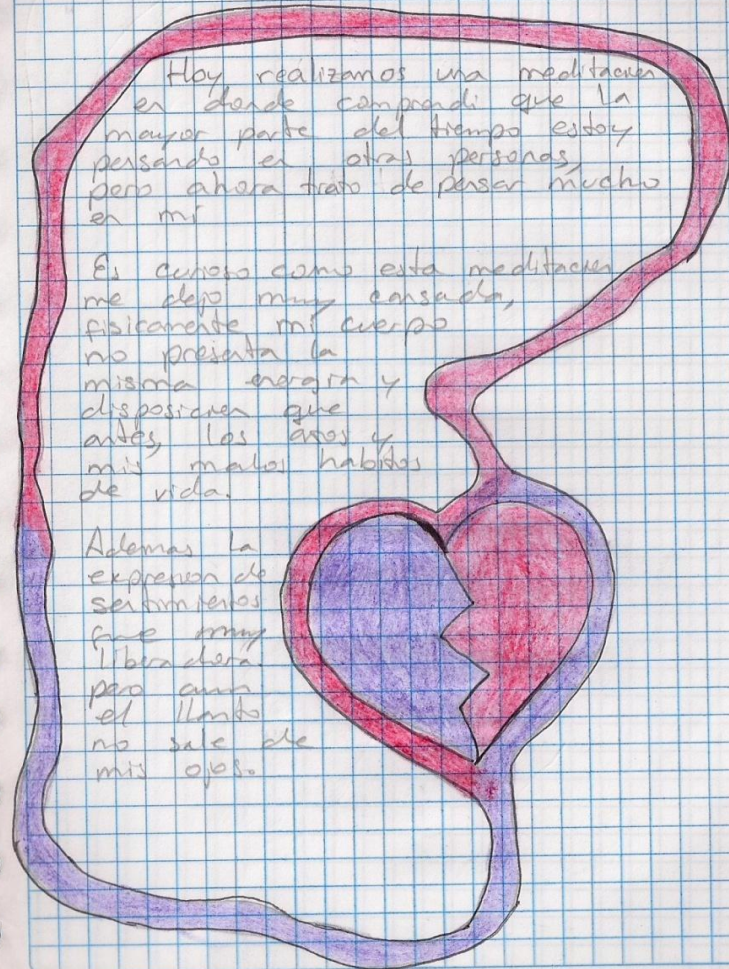 Hoy realizamos una meditacion
en donde comprendi que la
mayor parte del tiempo estoy
pensando en otras personas,
pero ahora trato de pensar mucho
en mi
Es curioso como esta meditacion
me dejo muy cansada,
fisicamente mi cuerpo
no presenta la
misma energia y
disposicion que
antes, los años y
mis malos habitos
de vida.
Ademas la
expresion de
sentimientos
fue muy
liberadora
pero aun
el llanto
no sale de
mis ojos.